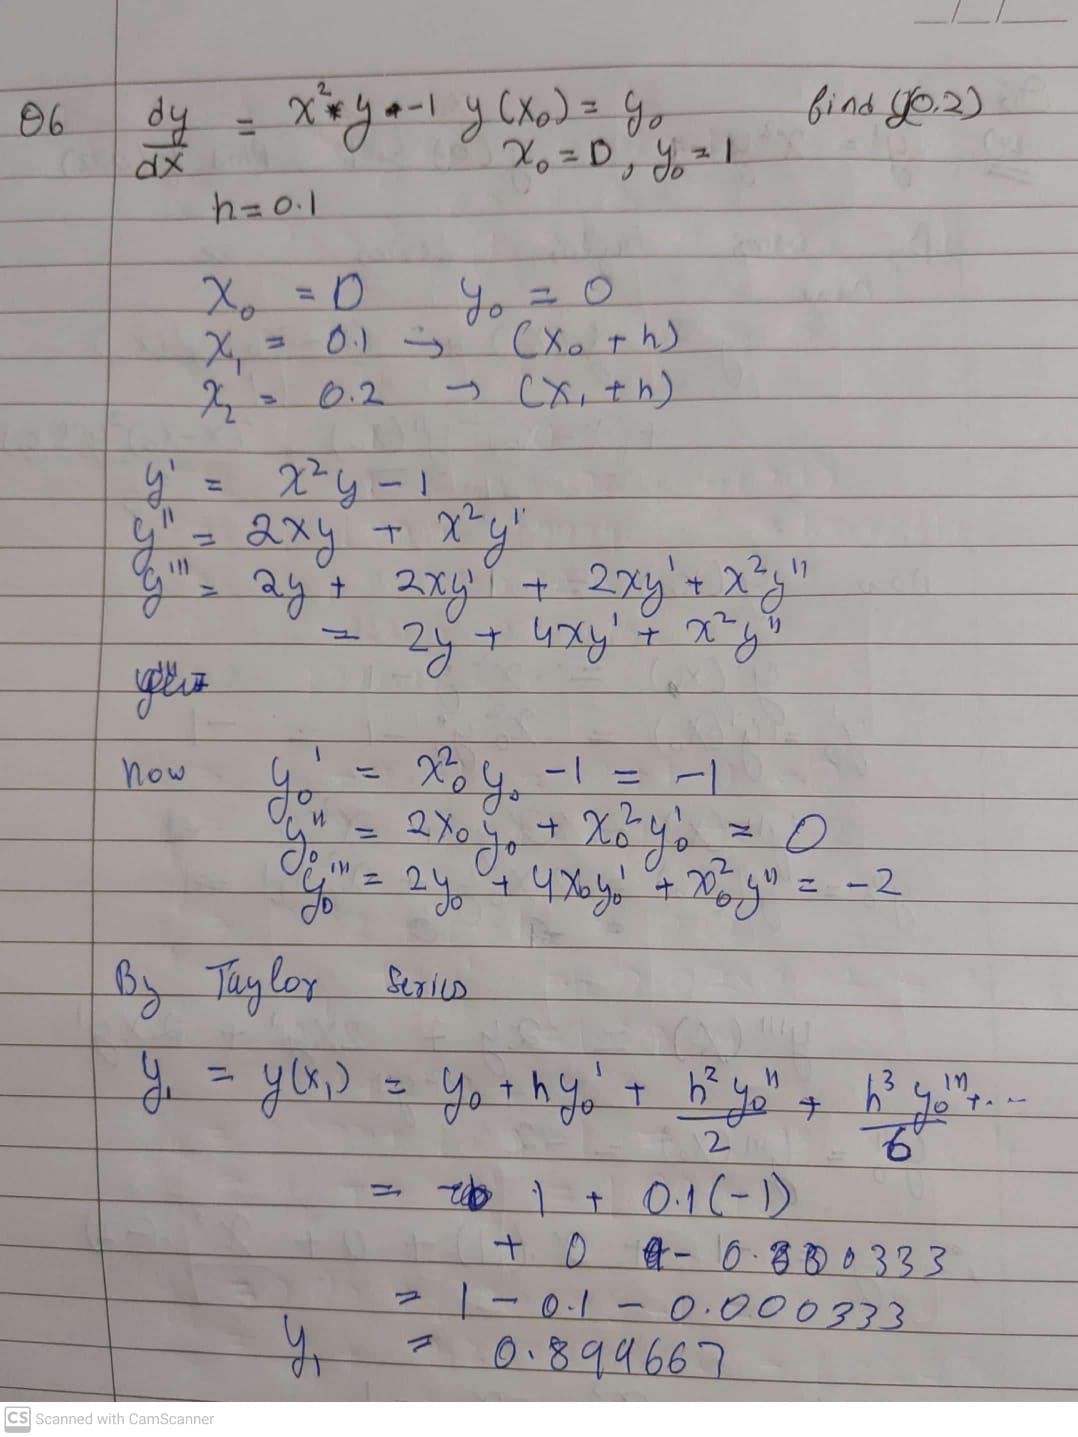 Q6 dy/dx = x² y -1 y(x₀) = y₀ find y(0.2)
x₀ = 0, y₀ = 1
h = 0.1
x₀ = 0 y₀ = 0
x₁ = 0.1 → (x₀ + h)
x₂ = 0.2 → (x₁ + h)
y' = x²y - 1
y'' = 2xy + x²y'
y''' = 2y + 2xy' + 2xy' + x²y''
= 2y + 4xy' + x²y''
Now y₀' = x₀² y₀ - 1 = -1
y₀'' = 2x₀y₀ + x₀²y₀' = 0
y₀''' = 2y₀ + 4x₀y₀' + x₀²y'' = -2
By Taylor Series
y₁ = y(x₁) = y₀ + hy₀' + h²y₀''/2 + h³y₀'''/6 + ...
= 1 + 0.1(-1)
+ 0 - 0.000333
= 1 - 0.1 - 0.000333
y₁ = 0.899667
CS Scanned with CamScanner